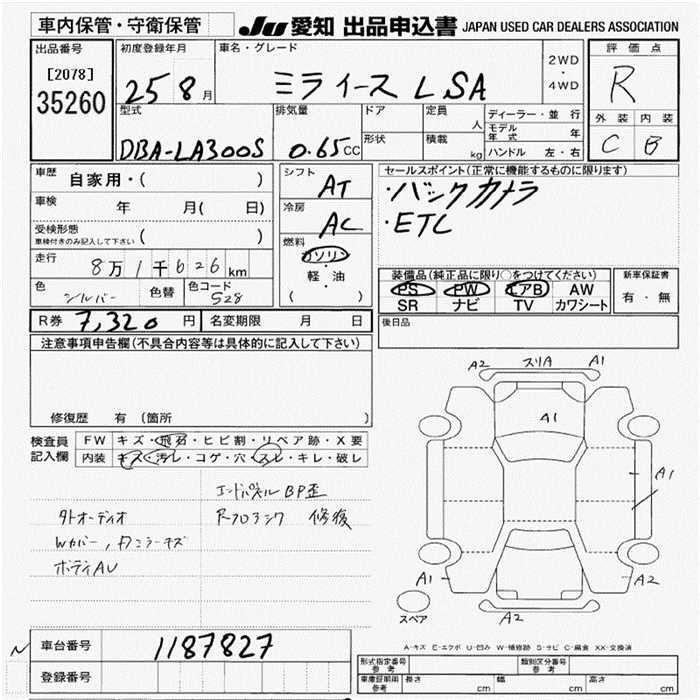 車内保管・守衛保管
JU 愛知 出品申込書 JAPAN USED CAR DEALERS ASSOCIATION
出品番号 初度登録年月 車名・グレード 2WD・4WD 評価点
[2078]
35260 25 8月 ミライース L SA R
型式 排気量 ドア 定員 人 ディーラー・並行 外装 内装
モデル年式 年
形状 積載 kg ハンドル 左・右
DBA-LA300S 0.65CC C B
車歴 自家用・( ) シフト AT セールスポイント(正常に機能するものに限ります)
車検 年 月( 日) 冷房 AC ・バックカメラ
受検形態 ( ) ・ETC
車検付きのみ記入して下さい
燃料 ガソリン・軽・油 ( )
走行 8万1千626km 装備品(純正品に限り○をつけてください) 新車保証書
色 シルバー 色替 色コード S28 PS PW エアB AW 有・無
SR ナビ TV カワシート
R券 7,320円 名変期限 月 日 後日品
注意事項申告欄(不具合内容等は具体的に記入して下さい)
修復歴 有 (箇所
A2 スリA A1
A1
A1
A1 A2
スペア
A2
検査員記入欄 FW キズ・飛石・ヒビ割・リペア跡・X要
内装 キズ・汚レ・コゲ・穴・スレ・キレ・破レ
エンドパネル BP歪
外オーディオ Rフロアシワ 修後
Wカバー,Fミラーキズ
ボディAU
A-キズ E-エクボ U-凹み W-補修跡 S-サビ C-腐食 XX-交換済
N 車台番号 1187827
登録番号
形式指定番号 参考 類別区分番号 参考
車庫証明用 参考 長さ cm 幅 cm 高さ cm